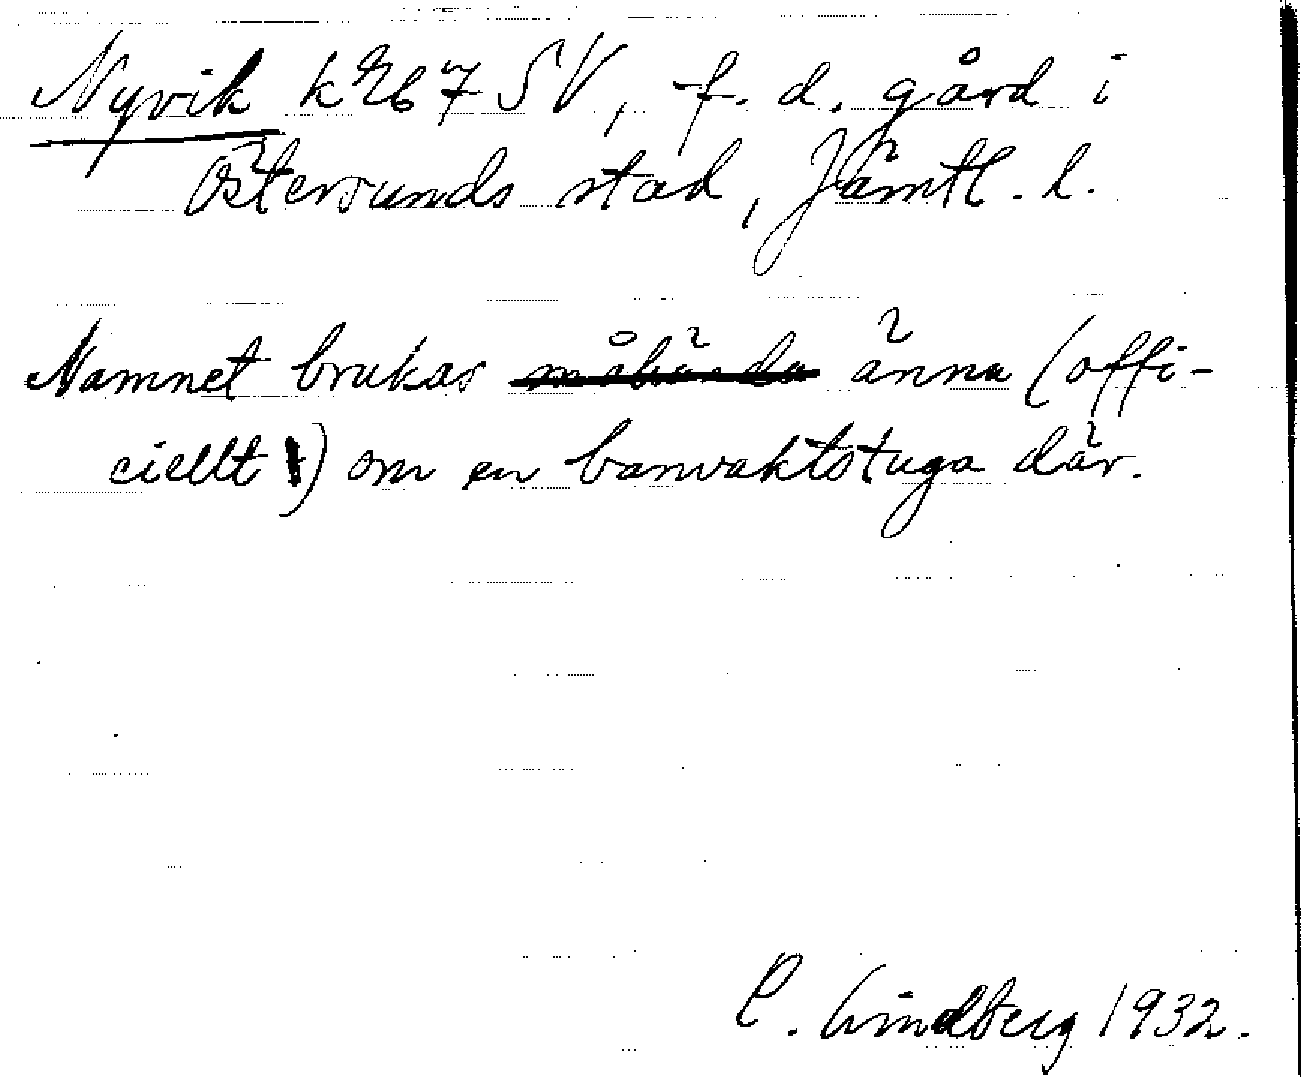 Nyvik k 267 SV, f. d. gård i
Östersunds stad, Jämtl. l.
Namnet brukas måhända änna (offi-
ciellt) om en banvaktstuga där.
C. Lindberg 1932.